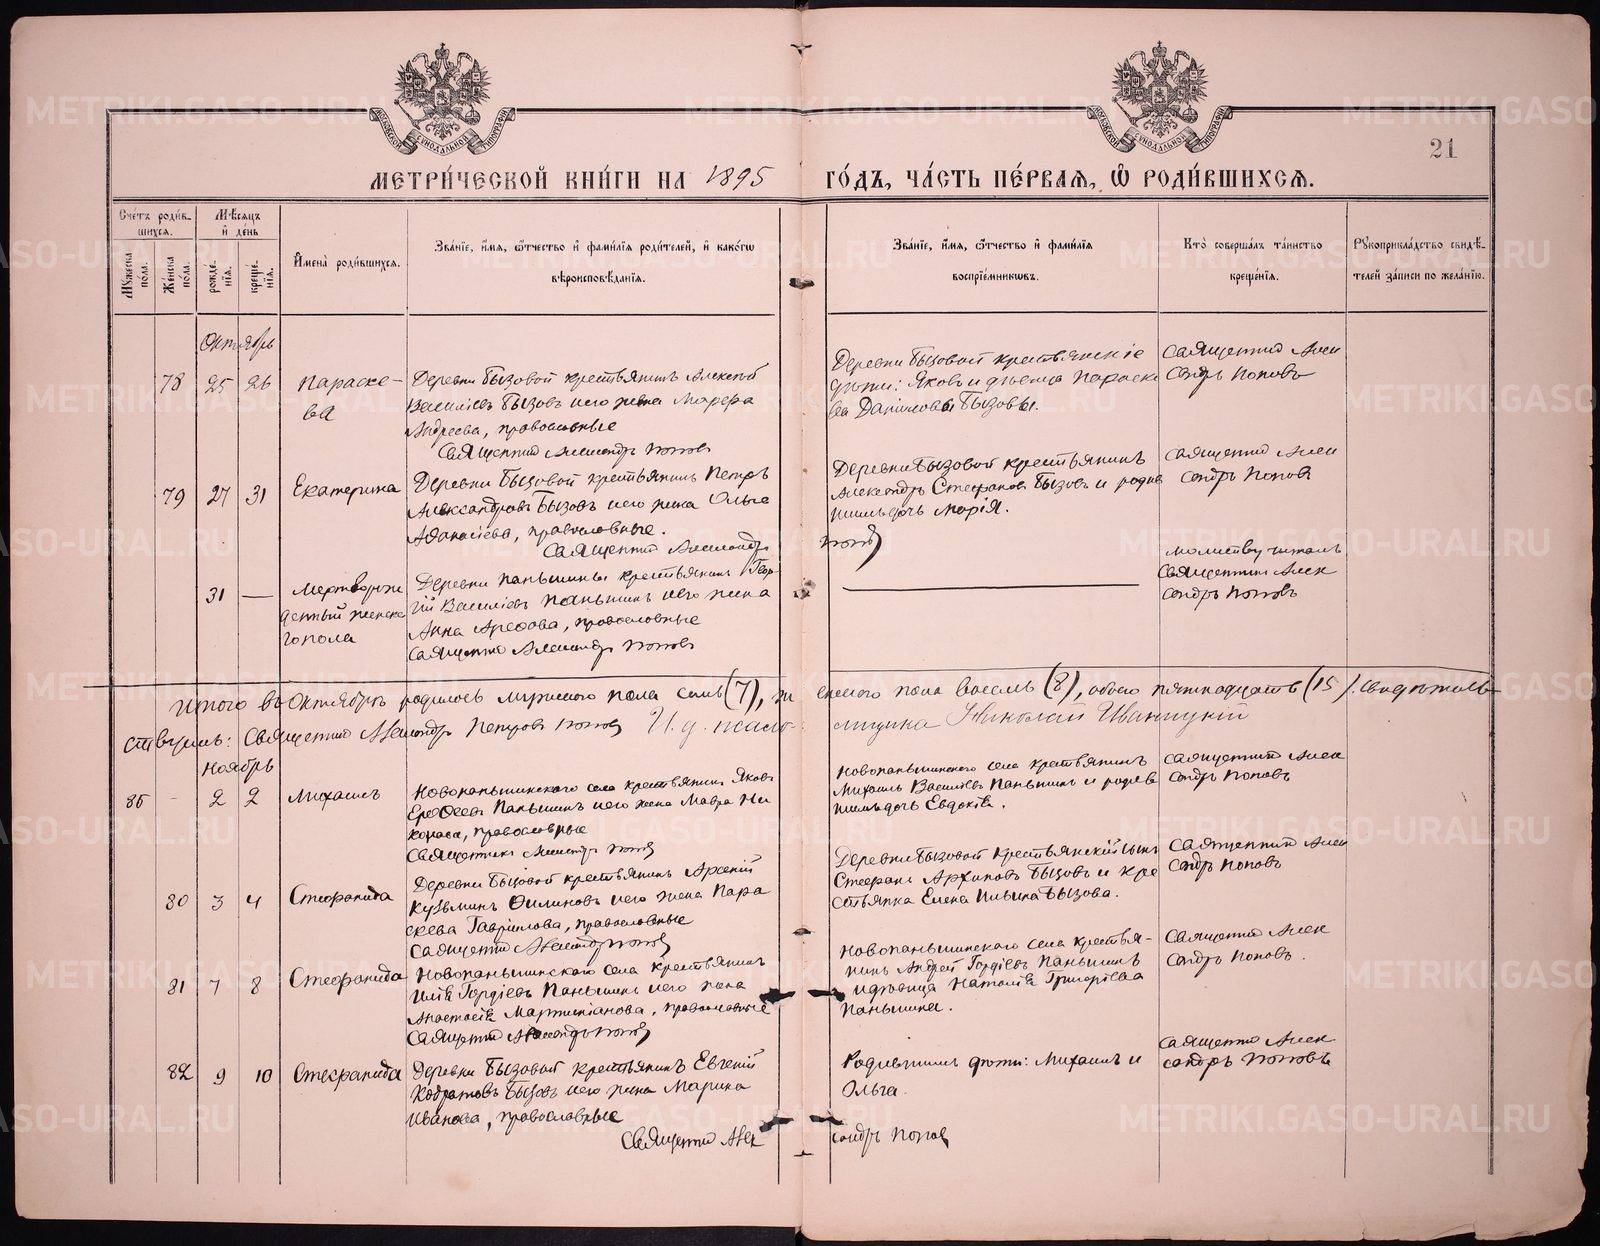 МЕТРИ́ЧЕСКОЙ КНИ́ГИ НА 1895 ГО́ДЪ, ЧА́СТЬ ПЕ́РВАЯ, Ѡ҆ РОДИ́ВШИХСЯ.
21
Сче́тъ роди́в-
шихся.
Мꙋжеска по́ла.
Женска по́ла.
Мѣсяцъ и҆ де́нь
рожде́нїя.
креще́нїя.
И҆мена̀ роди́вшихся.
Зва́нїе, и҆́мя, ѻ҆́тчество и҆ фами́лїя роди́телей, и҆ како́гѡ
вѣроисповѣ́данїя.
Зва́нїе, и҆́мя, ѻ҆́тчество и҆ фами́лїя
воспрїе́мникѡвъ.
Кто̀ соверша́лъ та́инство
креще́нїя.
Рꙋкоприкла́дство свидѣ́-
телей за́писи по жела́нїю.
Октябрь
78 25 26
Параске-
ва
Деревни Бызовой крестьянинъ Алексѣй
Василіевъ Бызовъ и его жена Марфа
Андреева, православные
Священникъ Александръ Поповъ
Деревни Бызовой крестьянскіе
дѣти: Яковъ и дѣвица Параске
ва Даниловы Бызовы.
Священникъ Алек
сандръ Поповъ
79 27 31
Екатерина
Деревни Бызовой крестьянинъ Петръ
Александровъ Бызовъ и его жена Ольга
Аѳанасіева, православные.
Священникъ Александръ
Поповъ
Деревни Бызовой крестьянинъ
Александръ Стефановъ Бызовъ и родив
шильдочь Марія.
Священникъ Алек
сандръ Поповъ
31 —
Мертворож
денный женска
го пола
Деревни Паньшины крестьянинъ Геор-
гій Василіевъ Паньшинъ и его жена
Анна Арефова, православные
Священникъ Александръ Поповъ
Молитву читалъ
Священникъ Алек
сандръ Поповъ
Итого въ Октябрѣ родилось мужскаго пола семь (7), женскаго пола восемь (8), обоего пятнадцать (15). Свидѣтель-
ствуемъ: Священникъ Александръ Петровъ Поповъ И. д. псаломщика Николай Иваницкій
Ноябрь
85 - 2 2
Михаилъ
Новопаньшинскаго села крестьянинъ Яковъ
Ерофеевъ Паньшинъ и его жена Мавра Ни
конова, православные
Священникъ Александръ Поповъ
Новопаньшинскаго села крестьянинъ
Михаилъ Василіевъ Паньшинъ и
Евдокія.
Священникъ Алек
сандръ Поповъ
80 3 4
Стефанида
Деревни Бызовой крестьянинъ Арсеній
Кузьминъ Филиновъ и его жена Пара
скева Гаврилова, православные
Священникъ Александръ Поповъ
Деревни Бызовой крестьянскій сынъ
Стефанъ Архиповъ Бызовъ и кре
стьянка Елена Ильина Бызова.
Священникъ Алек
сандръ Поповъ
81 7 8
Стефанида
Новопаньшинскаго села крестьянинъ
Илія Гордіевъ Паньшинъ и его жена
Анастасія Мартиніанова, православные
Священникъ Александръ Поповъ
Новопаньшинскаго села крестья-
нинъ Андрей Гордіевъ Паньшинъ
и дѣвица Наталія Григоріева
Паньшина.
Священникъ Алек
сандръ Поповъ.
82 9 10
Стефанида
Деревни Бызовой крестьянинъ Евгеній
Кодратовъ Бызовъ и его жена Марина
Иванова, православные
Священникъ Алек
сандръ Поповъ
Родившіеся дѣти: Михаилъ и
Ольга.
Священникъ Алек
сандръ Поповъ
METRIKI.GASO-URAL.RU